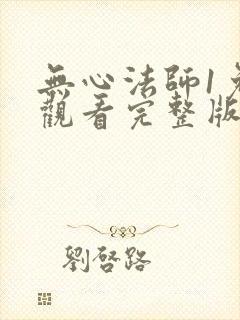 無心法師1
觀看完整版
劉啓路